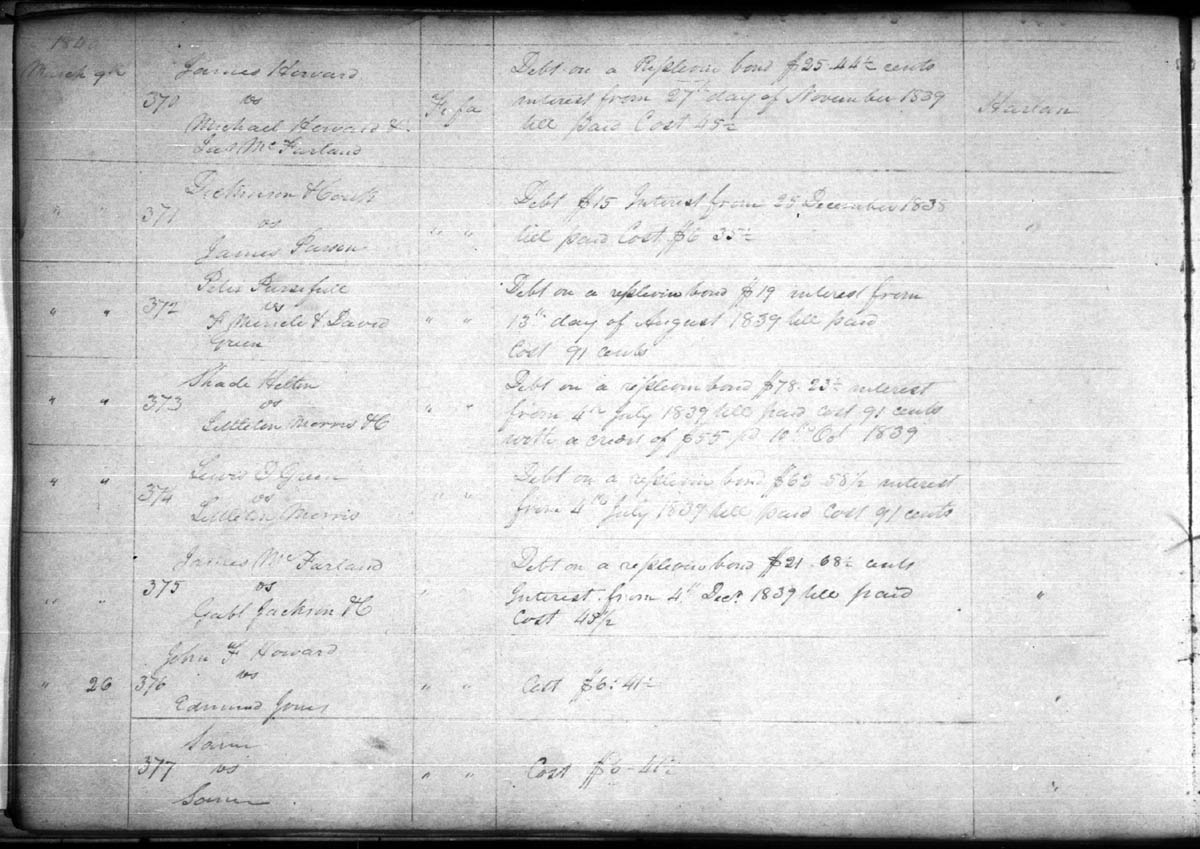 1840
March 9th
James Howard
370 vs
Michael Howard &
McFarland
Fi fa
Debt on a Replevin bond $25.44½ cents
interest from 27th day of November 1839
till paid Cost 45½
Harlan
" "
Dickinson &
371 vs
James
" "
Debt $15 Interest from 25 December 1838
till paid Cost $6 35½
"
" "
Peter Pursifull
372 vs
F & David
Green
" "
Debt on a replevin bond $19 interest from
13th day of August 1839 till paid
Cost 91 cents
" "
Shade Helton
373 vs
Littleton Morris & C
" "
Debt on a replevin bond $78.23½ interest
from 4th July 1839 till paid cost 91 cents
with a credit of $55 pd 10th Oct 1839
" "
Lewis D Green
374 vs
Littleton Morris
" "
Debt on a replevin bond $62 58½ interest
from 4th July 1839 till paid Cost 91 cents
" "
James McFarland
375 vs
Gabl Jackson & C
"
Debt on a replevin bond $21.68½ cents
Interest from 4th Decr 1839 till paid
Cost 45½
"
" 26
John F Howard
376 vs
Edmund Jones
" "
Cost $6:41½
"
Same
377 vs
Same
" "
Cost $6-41½
"